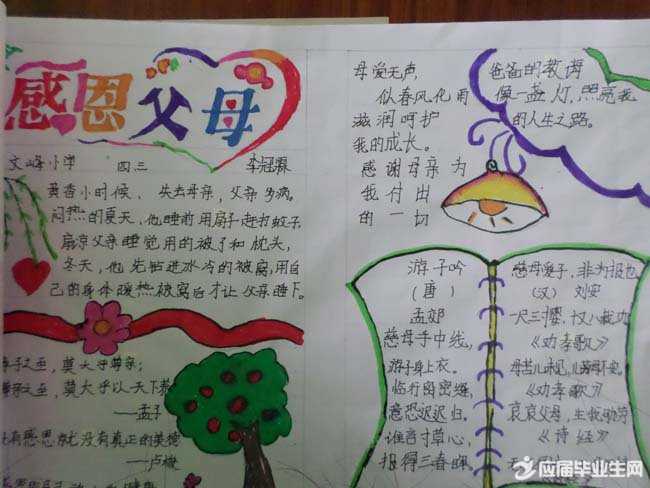 感恩父母
文峰小学 四三 李冠霖
黄香小时候、失去母亲，父亲多病。
闷热的夏天，他睡前用扇子赶打蚊子,
扇凉父亲睡觉用的被子和枕头,
冬天，他先钻进冰冷的被窝,用自
己的身体暖热被窝后才让父亲睡下。
子之至，莫大乎尊亲；
之至，莫大乎以天下养
——孟子
没有感恩就没有真正的美德
——卢梭
母爱无声,
似春风化雨
滋润呵护
我的成长。
感谢母亲为
我付出
的一切
爸爸的教诲
像一盏灯，照亮我
的人生之路。
游子吟
（唐）
孟郊
慈母手中线,
游子身上衣。
临行密密缝,
意恐迟迟归。
谁言寸草心,
报得三春晖。
慈母爱子，非为报也
（汉） 刘安
一尺三婴，十八载功
《劝孝歌》
母苦儿未见，儿劳母不安。
《劝孝歌》
哀哀父母，生我劬劳
《诗经》
应届毕业生网